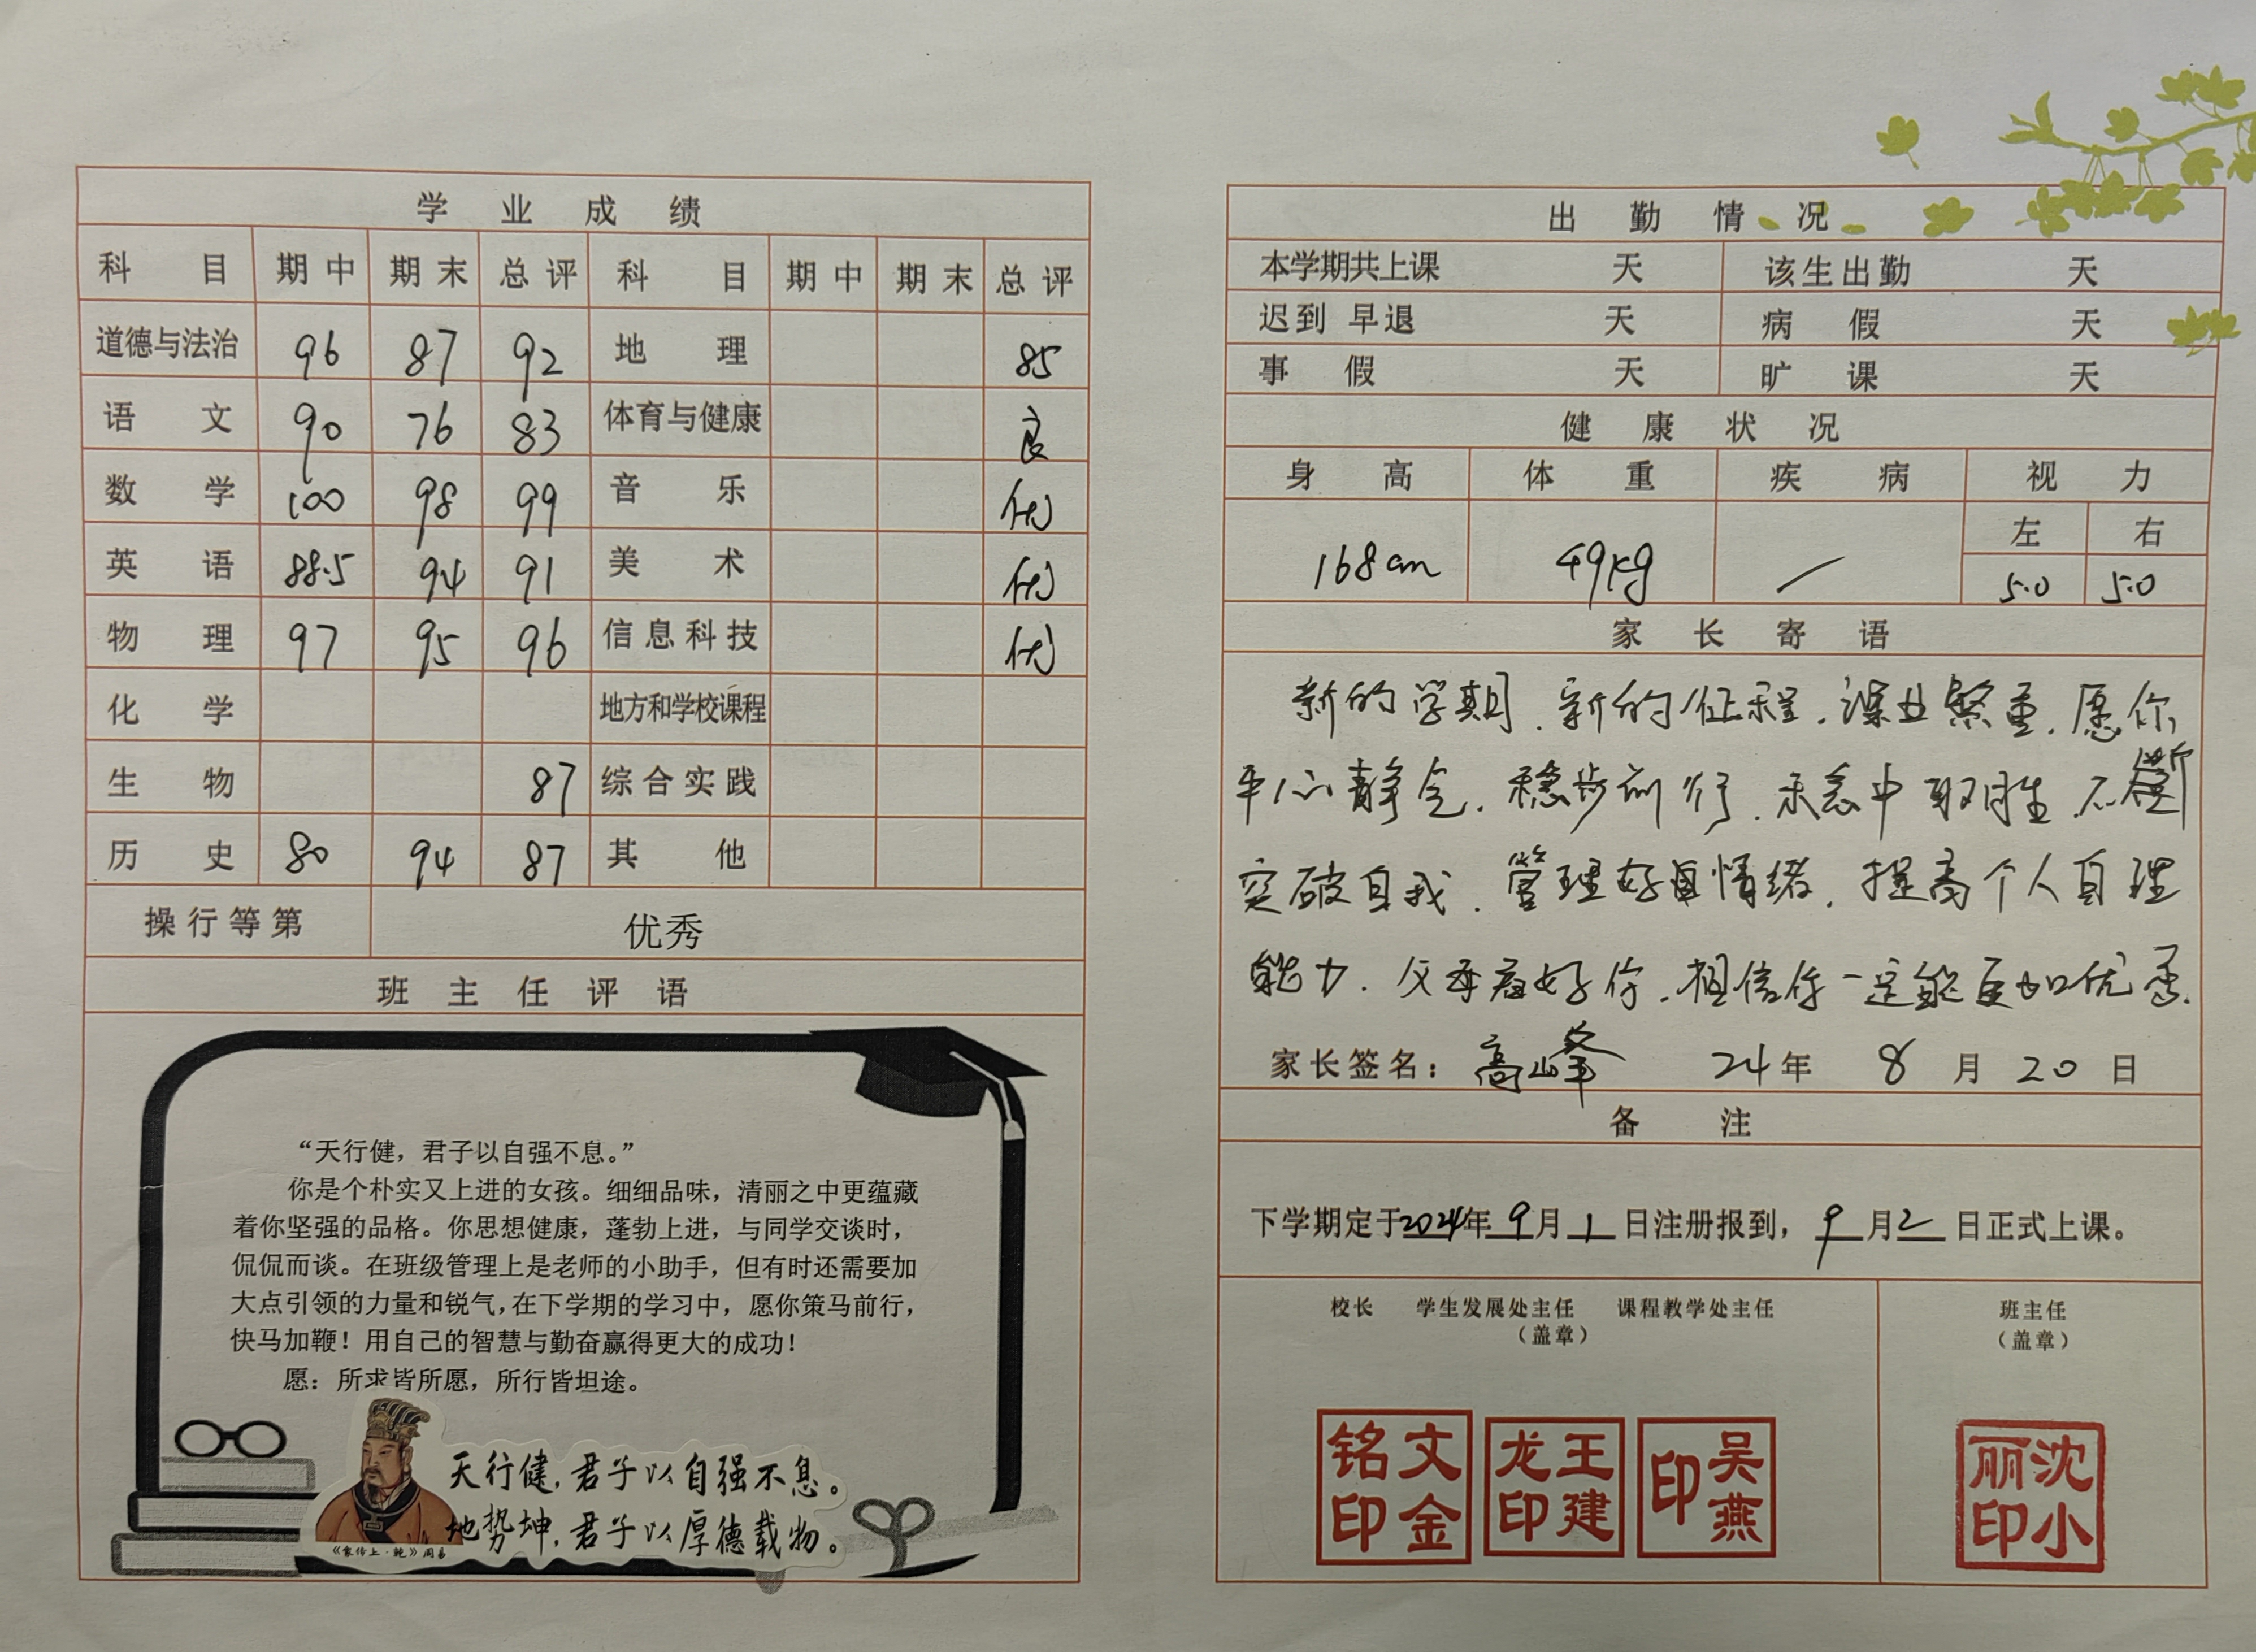 学业成绩
科目 期中 期末 总评 科目 期中 期末 总评
道德与法治 96 87 92 地理 85
语文 90 76 83 体育与健康 良
数学 100 98 99 音乐 优
英语 88.5 94 91 美术 优
物理 97 95 96 信息科技 优
化学 地方和学校课程
生物 87 综合实践
历史 80 94 87 其他
操行等第 优秀
班主任评语
“天行健，君子以自强不息。”
你是个朴实又上进的女孩。细细品味，清丽之中更蕴藏
着你坚强的品格。你思想健康，蓬勃上进，与同学交谈时，
侃侃而谈。在班级管理上是老师的小助手，但有时还需要加
大点引领的力量和锐气，在下学期的学习中，愿你策马前行，
快马加鞭！用自己的智慧与勤奋赢得更大的成功！
愿：所求皆所愿，所行皆坦途。
天行健，君子以自强不息。
地势坤，君子以厚德载物。
《象传上·乾》周易
出勤情况
本学期共上课 天 该生出勤 天
迟到 早退 天 病假 天
事假 天 旷课 天
健康状况
身高 体重 疾病 视力
左 右
168cm 49kg / 5.0 5.0
家长寄语
新的学期、新的征程，课业繁重，愿你
平心静气、稳步前行、末念中取胜、不断
突破自我、管理好自情绪，提高个人自理
能力、父母看好你，相信你一定能更加优秀.
家长签名：高峰 24年 8月 20日
备注
下学期定于2024年9月1日注册报到，9月2日正式上课。
校长 学生发展处主任 课程教学处主任 班主任
（盖章） （盖章）
文金铭印 王建龙印 吴燕印 沈小丽印